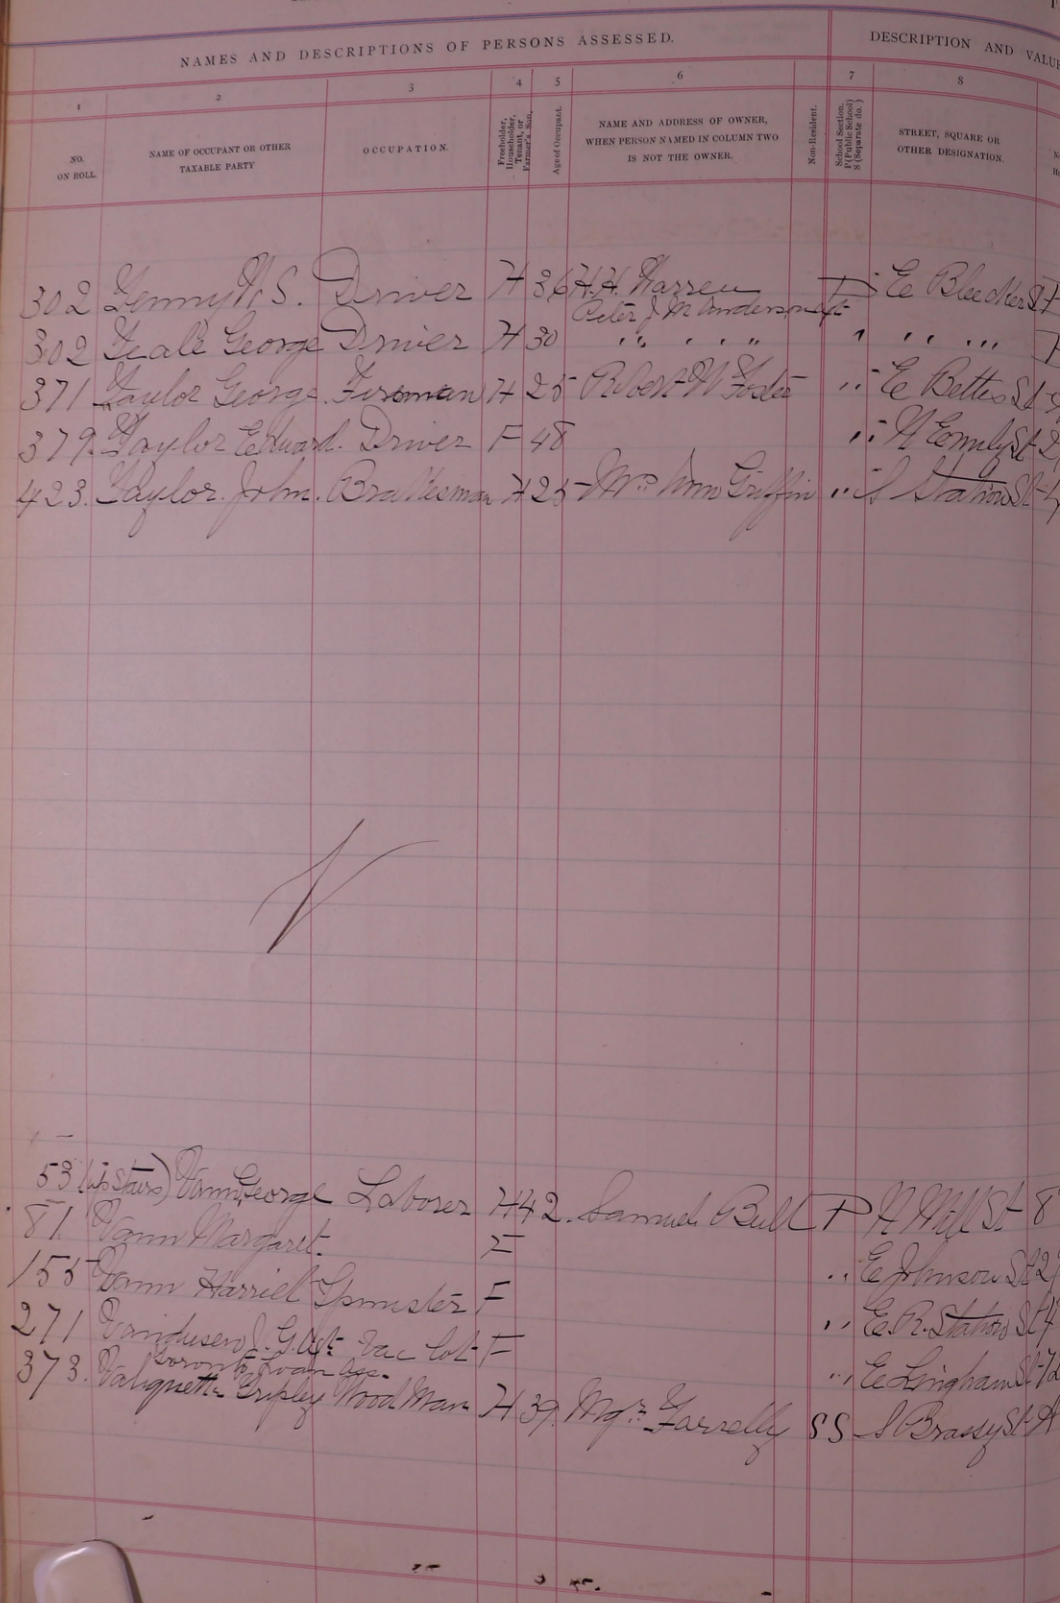 NAMES AND DESCRIPTIONS OF PERSONS ASSESSED. DESCRIPTION AND VALUE
1 2 3 4 5 6 7 8
NO. ON ROLL. NAME OF OCCUPANT OR OTHER TAXABLE PARTY OCCUPATION. Freeholder, Householder, Tenant, or Farmer's Son. Age of Occupant. NAME AND ADDRESS OF OWNER, WHEN PERSON NAMED IN COLUMN TWO IS NOT THE OWNER. Non-Resident. School Section. P (Public School) S (Separate do.) STREET, SQUARE OR OTHER DESIGNATION.
302 W. S. Driver H 36 H. H. Warren P E Bleecker St
Peter J M Anderson agt
302 Teale George Driver H 30 " " " " " " " "
371 Taylor George Fireman H 25 Robert W Foster " E Bettes St
379. Taylor Edward. Driver F 48 " N Emily St
423. Taylor John. Brakesman H 25 Mrs Wm Griffin " S Station St
V
53 (upstairs) Vann George Laborer H 42. Samuel Bull P N Mill St 8
81 Vann Margaret. F " E Johnson St
155 Vann Harriet Spinster F " E. R. Station St
271 Vandusen J. G. Agt. Vac Lot F " E Lingham St
Toronto Loan Ass.
373. Valiquette Wood Man H 39 Mgr Farrelly S S S Brassy St